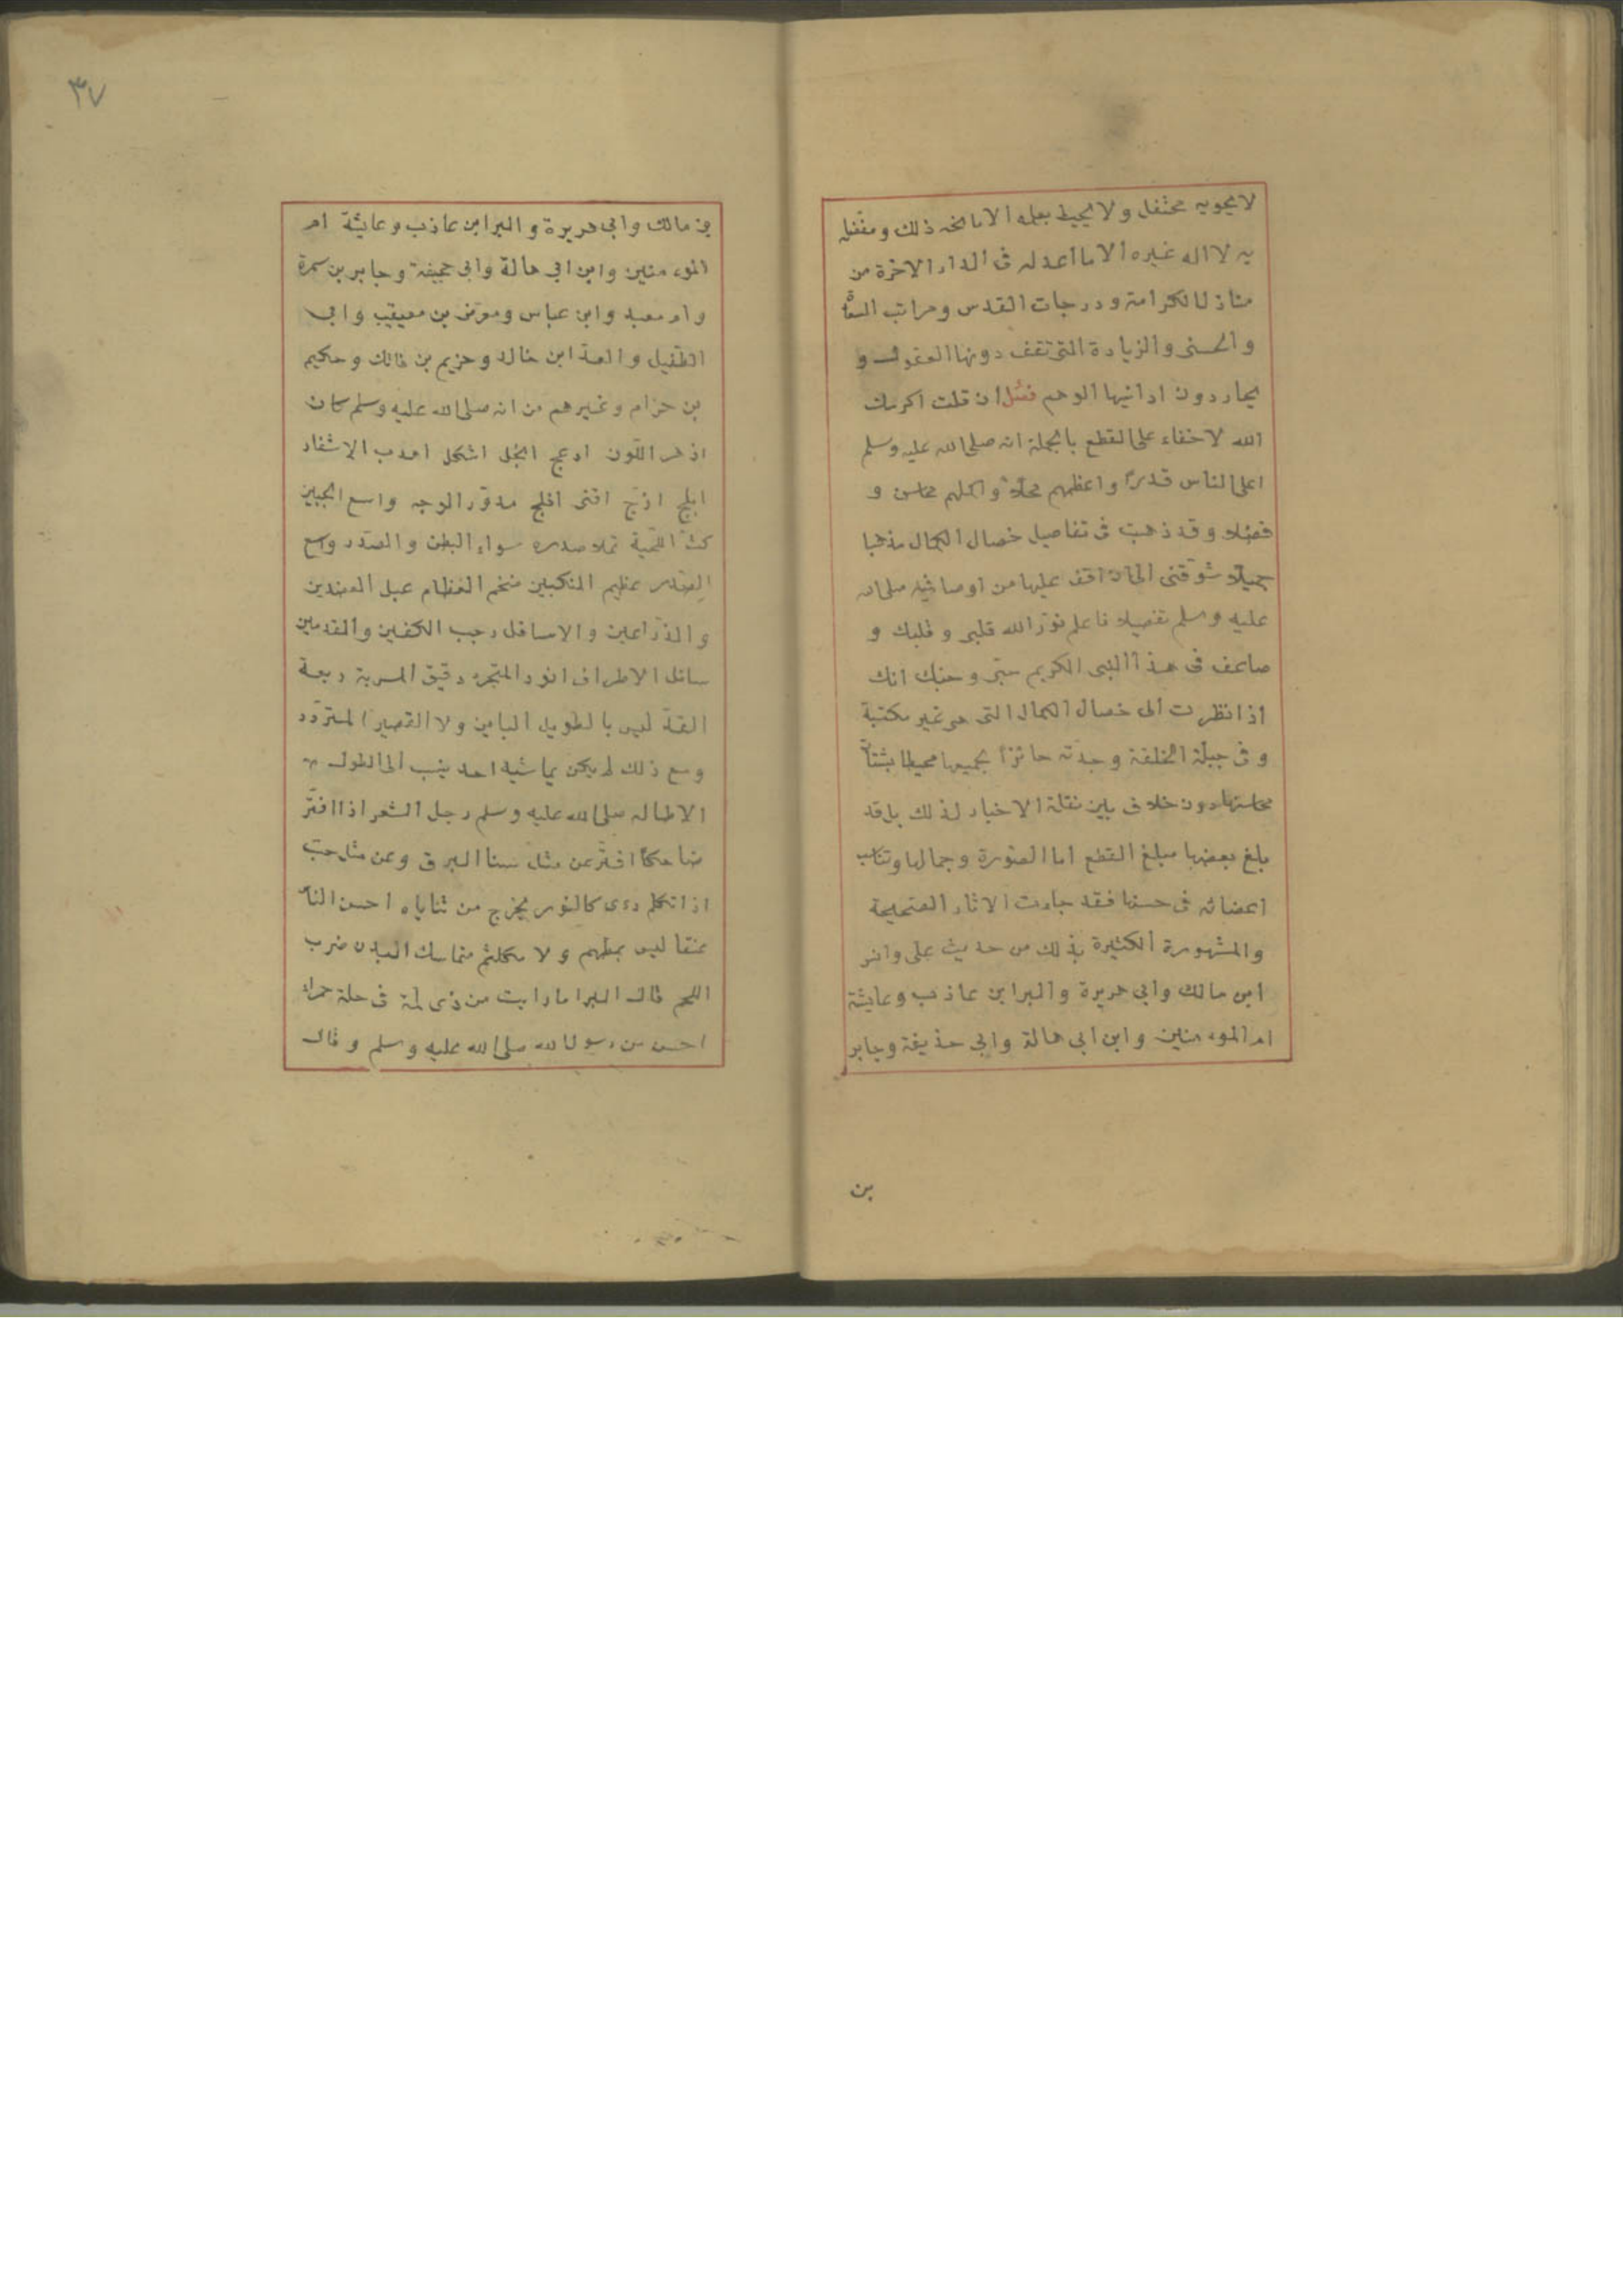 لا يحويه محتفل ولا يحيط بعلمه الا مانحه ذلك ومفضله
به لا اله غيره الا ما اعد له فى الدار الاخرة من
منازل الكرامة ودرجات القدس ومراتب السعا
والحسنى والزيادة التى تقف دونها العقول و
يحار دون ادانيها الوهم فصل ان قلت اكرمك
الله لا خفاء على القطع بالجملة انه صلى الله عليه وسلم
اعلى الناس قدرًا واعظمهم محلاً واكملهم محاسن و
فضلا وقد ذهبت فى تفاصيل خصال الكمال مذهبا
جميلاً شوقنى الى ان اقف عليها من اوصافه صلى الله
عليه وسلم تفصيلا فاعلم نوّر الله قلبى وقلبك و
ضاعف فى هذا النبى الكريم حبى وحبك انك
اذا نظرت الى خصال الكمال التى هى غير مكتبة
وفى جبلّة الخلقة وجدته حائزاً بجميعها محيطا بشتات
محاسنها دون خلاف بين نقلة الاخبار لذلك بل قد
بلغ بعضها مبلغ القطع اما الصورة وجمالها وتناسب
اعضائه فى حسنها فقد جاءت الاثار الصحيحة
والمشهورة الكثيرة بذلك من حديث على وانس
ابن مالك وابى هريرة والبرا ابن عاذب وعايشة
ام الموء منين وابن ابى هالة وابى حذيفة وجابر
بن
٣٧
بن مالك وابى هريرة والبرا ابن عاذب وعايشة ام
الموء منين وابن ابى هالة وابى جحيفة وجابر بن سمرة
وام معبد وابن عباس ومعرض بن معيقيب وابى
الطفيل والعدا ابن خالد وخزيم بن فاتك وحكيم
بن حزام وغيرهم من انه صلى الله عليه وسلم كان
ازهر اللّون ادعج انجل اشكل اهدب الاشفار
ابلج ازجّ اقنى افلج مدوّر الوجه واسع الجبين
كثّ اللّحية تملا صدره سواء البطن والصّدر واسع
الصّدر عظيم المنكبين ضخم العظام عبل العضدين
والذّراعين والاسافل رحب الكفين والقدمين
سائل الاطراف انور المتجرد دقيق المسربة ربعة
القدّ ليس بالطويل الباين ولا القصير المتردّد
ومع ذلك لم يكن يماشيه احد ينسب الى الطول
الا طاله صلى الله عليه وسلم رجل الشعر اذا افترّ
ضاحكاً افترّ عن مثل سنا البرق وعن مثل حبّ
اذا تكلم رءى كالنور يخرج من ثناياه احسن النا
عنقا ليس بمطهم ولا مكلثم متماسك البدن ضرب
اللحم قال البرا ما رايت من ذى لمة فى حلة حمراء
احسن من رسول الله صلى الله عليه وسلم وقال